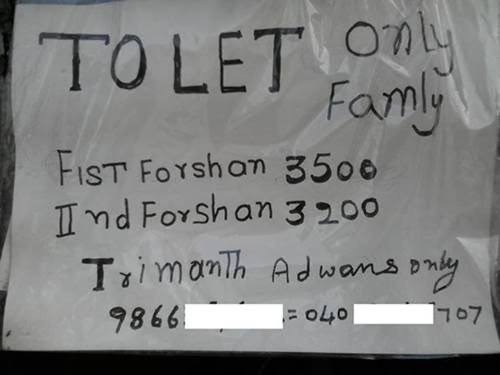 TO LET Only
Famly
FIST Forshan 3500
IInd Forshan 3200
Trimanth Adwans only
9866 = 040 707